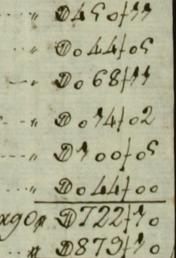 " D450/11
" D044/05
" D068/11
" D014/02
" D100/05
" D044/00
" D722/10
" D879/10